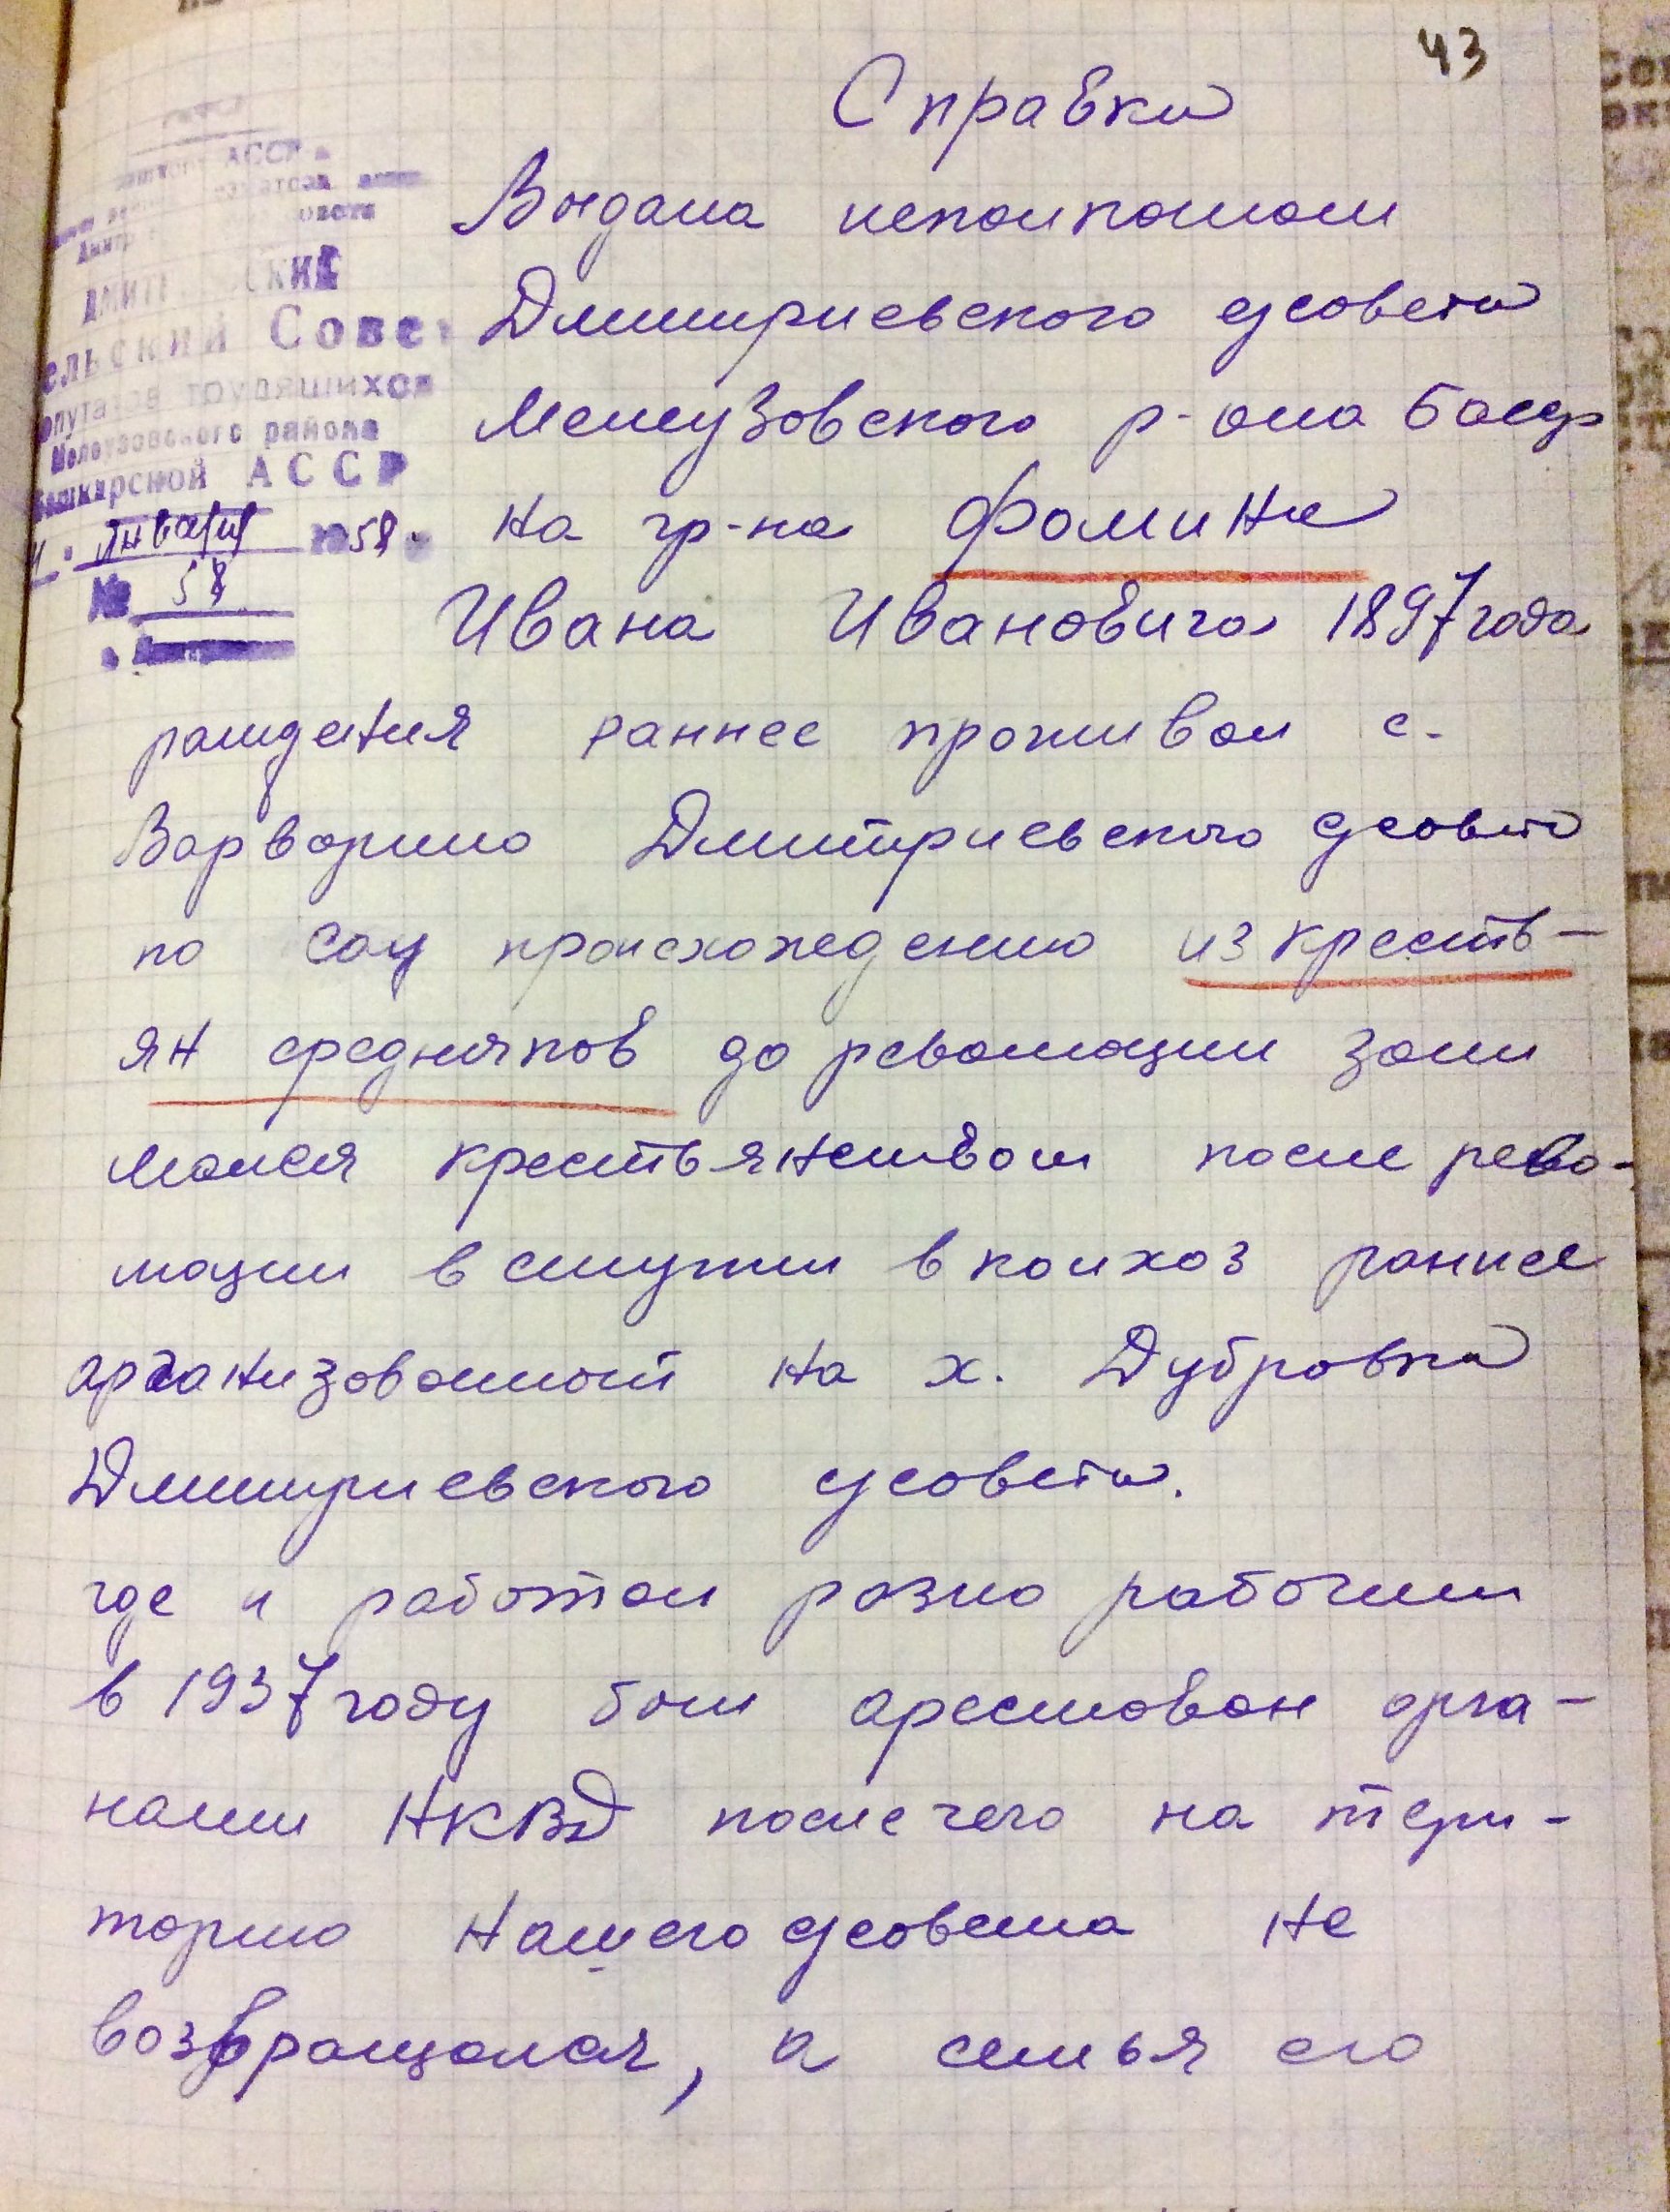 43
Справка
АССР
ДМИТРИЕВСКИЙ
СЕЛЬСКИЙ Совет
депутатов трудящихся
Мелеузовского района
Башкирской АССР
января 1958
№ 58
Выдана исполкомом
Дмитриевского с/совета
Мелеузовского р-она Баср
на гр-на Фомина
Ивана Ивановича 1897 года
рождения раннее проживал с.
Варварино Дмитриевского с/совета
по соц происхождению из кресть-
ян средняков до революции зани
мался крестьянством после рево-
люции вступил в колхоз раннее
организованный на х. Дубровка
Дмитриевского с/совета.
где и работал разно рабочим
в 1937 году был арестован орга-
нами НКВД после чего на тери-
торию нашего с/совета не
возвращался, а семья его